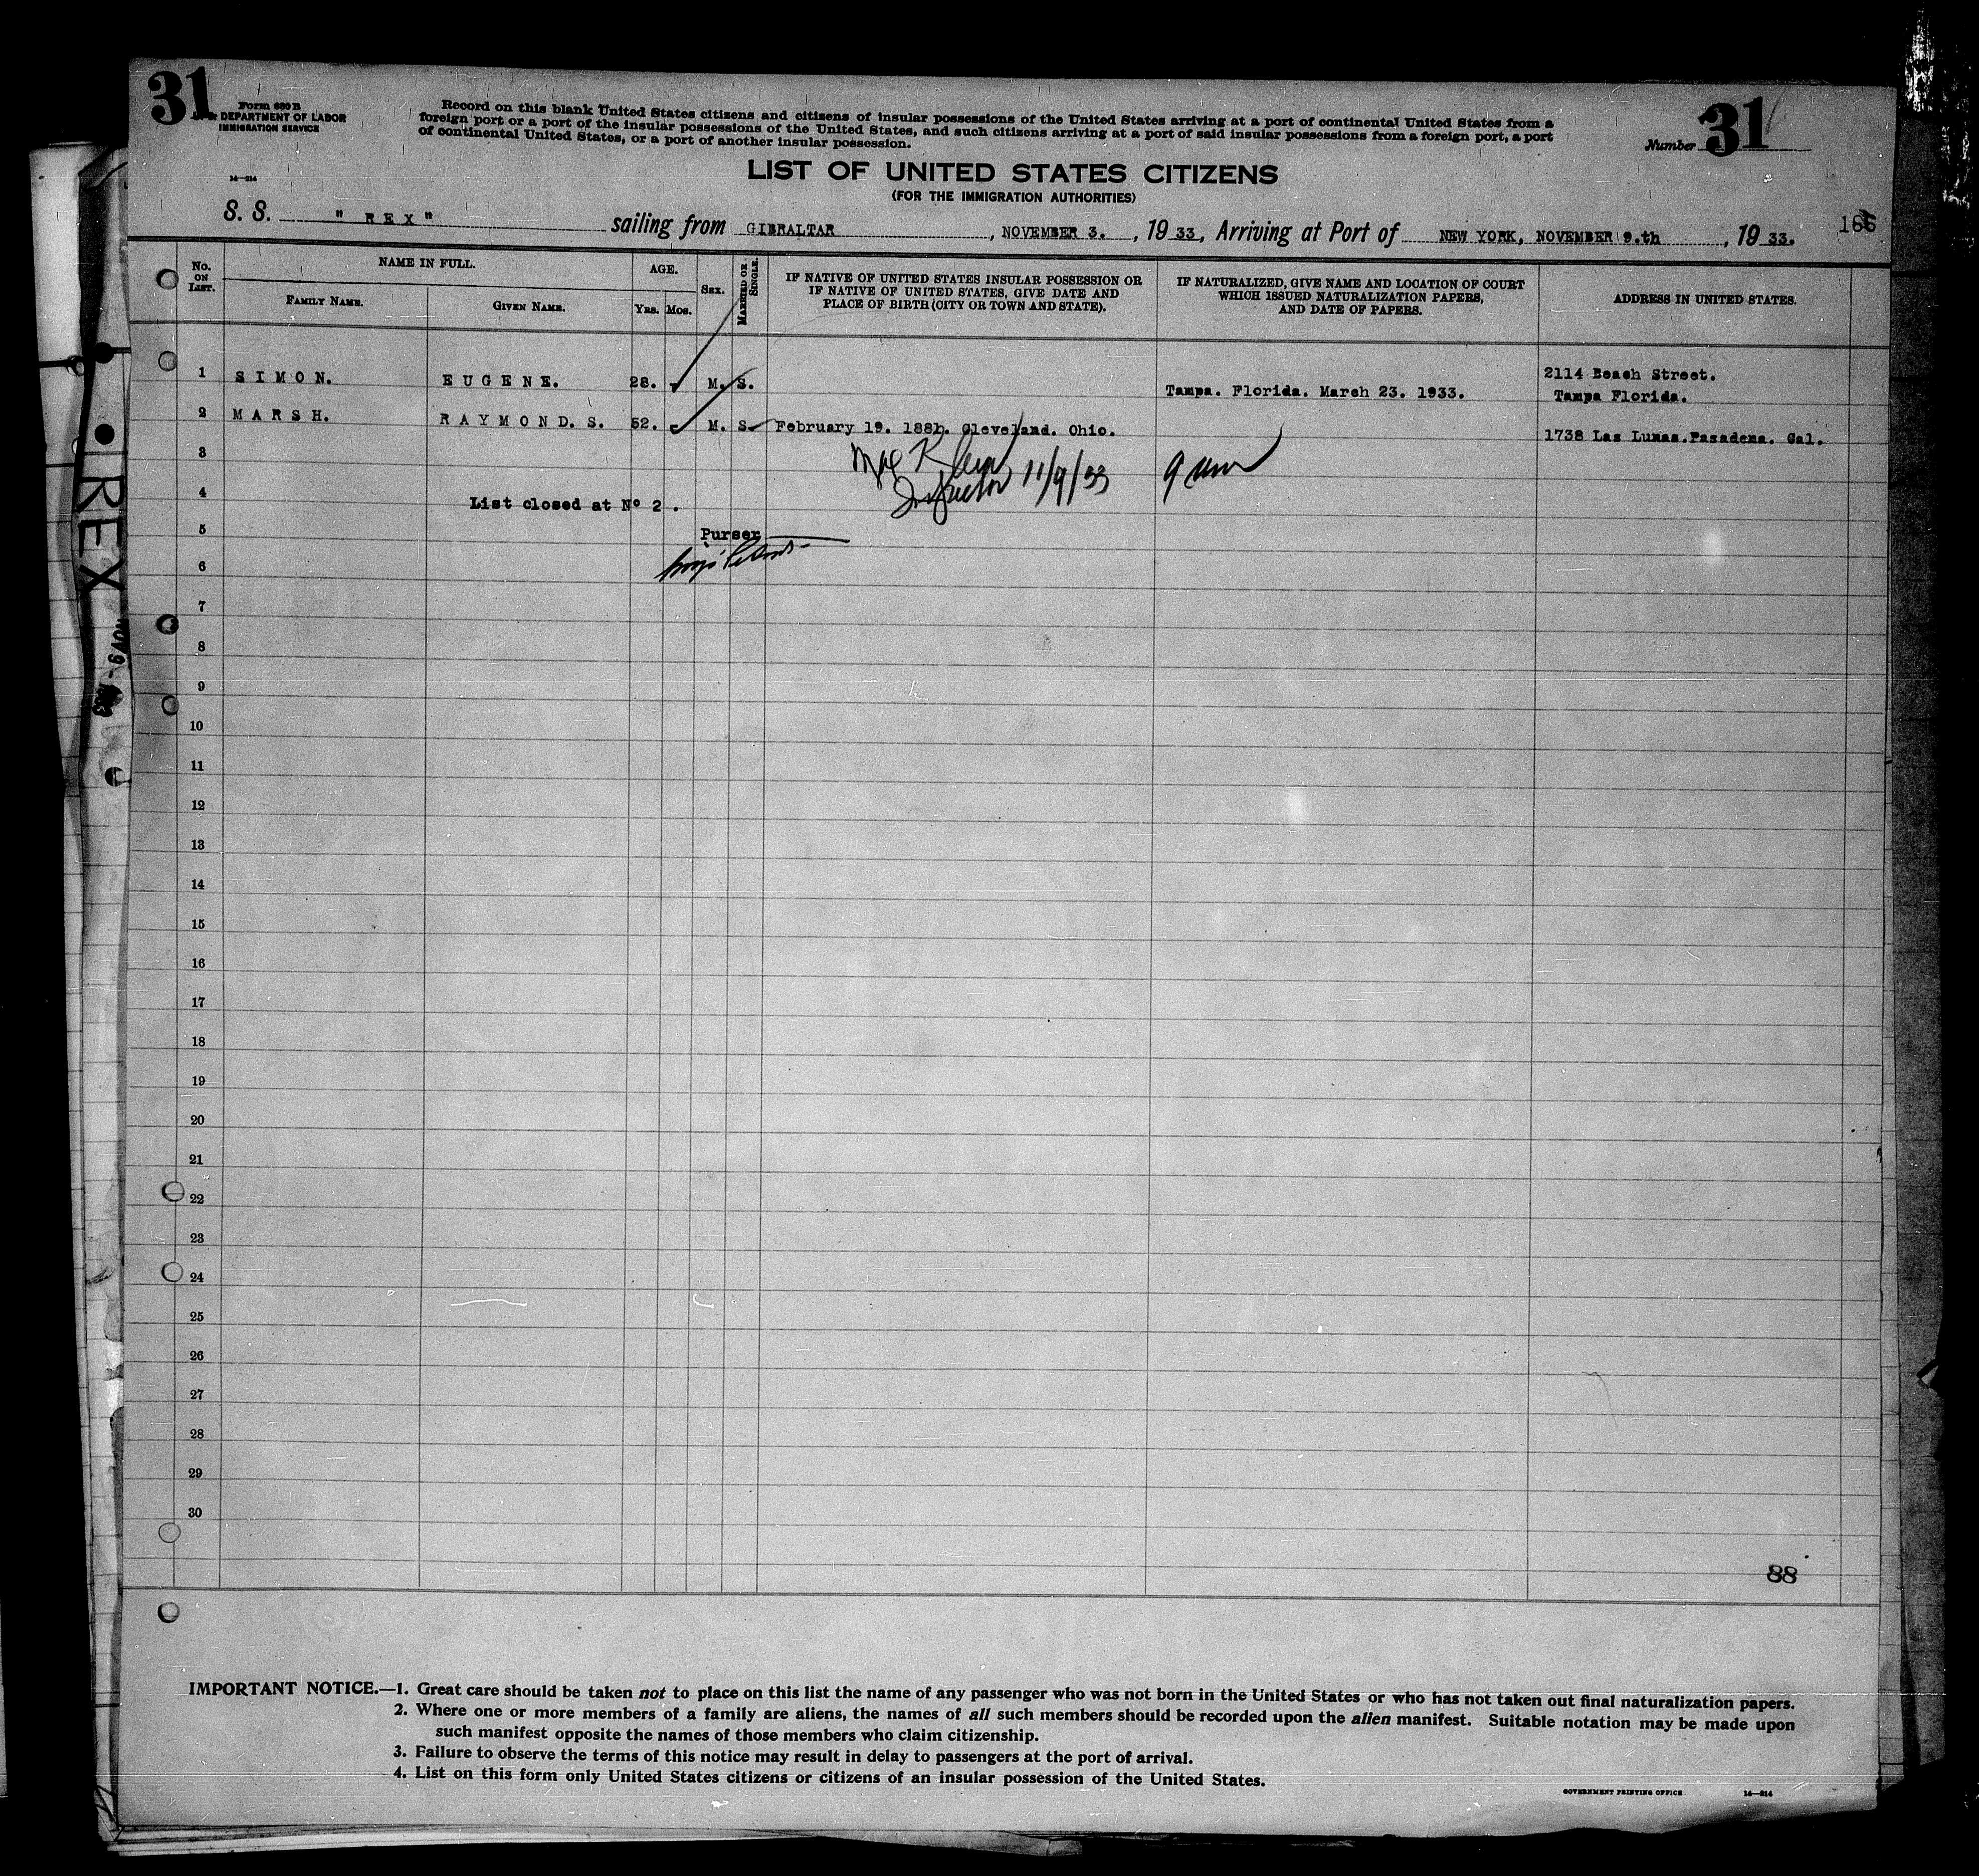 31
Form 630 B
DEPARTMENT OF LABOR
IMMIGRATION SERVICE
Record on this blank United States citizens and citizens of insular possessions of the United States arriving at a port of continental United States from a
foreign port or a port of the insular possessions of the United States, and such citizens arriving at a port of said insular possessions from a foreign port, a port
of continental United States, or a port of another insular possession.
Number 31
LIST OF UNITED STATES CITIZENS
(FOR THE IMMIGRATION AUTHORITIES)
14—214
S. S. "REX" sailing from GIBRALTAR, NOVEMBER 3., 1933, Arriving at Port of NEW YORK, NOVEMBER 9.th, 1933.
No. ON LIST. NAME IN FULL. AGE. SEX. MARRIED OR SINGLE. IF NATIVE OF UNITED STATES INSULAR POSSESSION OR IF NATIVE OF UNITED STATES, GIVE DATE AND PLACE OF BIRTH (CITY OR TOWN AND STATE). IF NATURALIZED, GIVE NAME AND LOCATION OF COURT WHICH ISSUED NATURALIZATION PAPERS, AND DATE OF PAPERS. ADDRESS IN UNITED STATES.
FAMILY NAME. GIVEN NAME. YRS. MOS.
1 SIMON. EUGENE. 28. M. S. Tampa. Florida. March 23. 1933. 2114 Beach Street. Tampa Florida.
2 MARSH. RAYMOND. S. 52. M. S. February 19. 1881. Cleveland. Ohio. 1738 Las Lunas.Pasadena. Cal.
3 Inspector 11/9/33
4 List closed at Nº 2.
5 Purser
6
7
8
9
10
11
12
13
14
15
16
17
18
19
20
21
22
23
24
25
26
27
28
29
30
88
REX
NOV 9 - 1933
IMPORTANT NOTICE.—1. Great care should be taken not to place on this list the name of any passenger who was not born in the United States or who has not taken out final naturalization papers.
2. Where one or more members of a family are aliens, the names of all such members should be recorded upon the alien manifest. Suitable notation may be made upon
such manifest opposite the names of those members who claim citizenship.
3. Failure to observe the terms of this notice may result in delay to passengers at the port of arrival.
4. List on this form only United States citizens or citizens of an insular possession of the United States.
GOVERNMENT PRINTING OFFICE 14—214